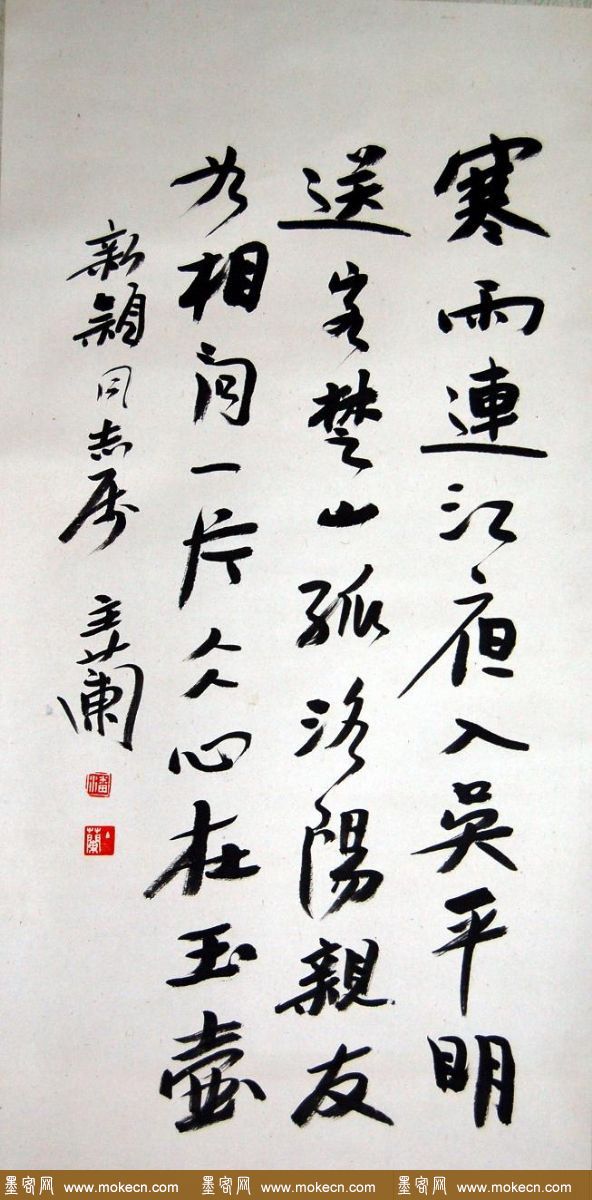 寒雨連江夜入吳平明
送客楚山孤洛陽親友
如相問一片仌心在玉壺
新穎同志属 主蘭
潘
主蘭
墨客网 www.mokecn.com 墨客网 www.mokecn.com 墨客网 www.mokecn.com